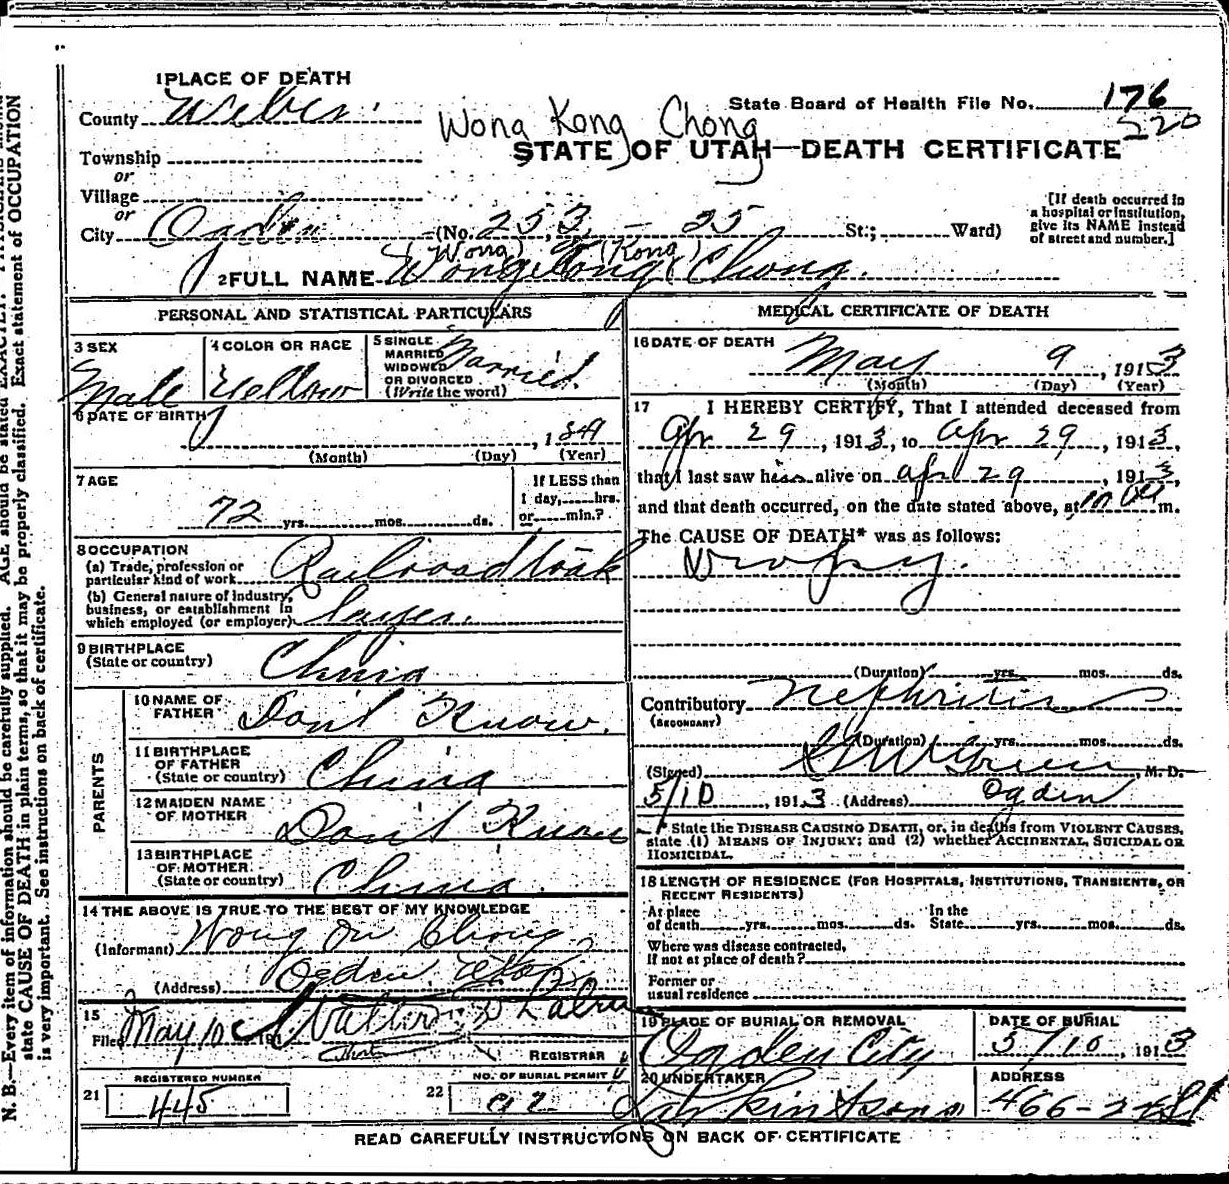 1 PLACE OF DEATH
County Weber.
State Board of Health File No. 176
220
Wong Kong Chong
STATE OF UTAH—DEATH CERTIFICATE
Township
or
Village
or
City Ogden (No. 253, - 25 St.; Ward)
[If death occurred in
a hospital or institution,
give its NAME instead
of street and number.]
(Wong) (Kong)
2 FULL NAME Chong.
PERSONAL AND STATISTICAL PARTICULARS
3 SEX
Male
4 COLOR OR RACE
Yellow
5 SINGLE
MARRIED
WIDOWED
OR DIVORCED
(Write the word)
Married.
6 DATE OF BIRTH
, 1
(Month) (Day) (Year)
7 AGE
72 yrs. mos. ds.
If LESS than
1 day, hrs.
or min.?
8 OCCUPATION
(a) Trade, profession or
particular kind of work Railroad track
(b) General nature of industry,
business, or establishment in
which employed (or employer) layer.
9 BIRTHPLACE
(State or country) China
PARENTS
10 NAME OF
FATHER Don't Know.
11 BIRTHPLACE
OF FATHER
(State or country) China
12 MAIDEN NAME
OF MOTHER Don't Know
13 BIRTHPLACE
OF MOTHER
(State or country) China.
14 THE ABOVE IS TRUE TO THE BEST OF MY KNOWLEDGE
(Informant) Wong On Chong,
(Address) Ogden Utah
15
Filed May 10 191 Walter
REGISTRAR
REGISTERED NUMBER
21 445
NO. OF BURIAL PERMIT
22
MEDICAL CERTIFICATE OF DEATH
16 DATE OF DEATH
May 9, 1913
(Month) (Day) (Year)
17 I HEREBY CERTIFY, That I attended deceased from
Apr 29, 1913, to Apr 29, 1913,
that I last saw him alive on Apr 29, 1913,
and that death occurred, on the date stated above, at m.
The CAUSE OF DEATH* was as follows:
Dropsy.
(Duration) yrs. mos. ds.
Contributory Nephritis
(SECONDARY)
(Duration) yrs. mos. ds.
(Signed) M. D.
5/10, 1913 (Address) Ogden
* State the DISEASE CAUSING DEATH, or, in deaths from VIOLENT CAUSES,
state (1) MEANS OF INJURY; and (2) whether ACCIDENTAL, SUICIDAL OR
HOMICIDAL.
18 LENGTH OF RESIDENCE (FOR HOSPITALS, INSTITUTIONS, TRANSIENTS, OR
RECENT RESIDENTS)
At place
of death yrs. mos. ds.
In the
State yrs. mos. ds.
Where was disease contracted,
if not at place of death?
Former or
usual residence
19 PLACE OF BURIAL OR REMOVAL
Ogden City
DATE OF BURIAL
5/10, 1913
20 UNDERTAKER
Larkin & Sons
ADDRESS
466-24 St
READ CAREFULLY INSTRUCTIONS ON BACK OF CERTIFICATE
N. B.—Every item of information should be carefully supplied. AGE should be stated EXACTLY.
state CAUSE OF DEATH in plain terms, so that it may be properly classified. Exact statement of OCCUPATION
is very important. See instructions on back of certificate.